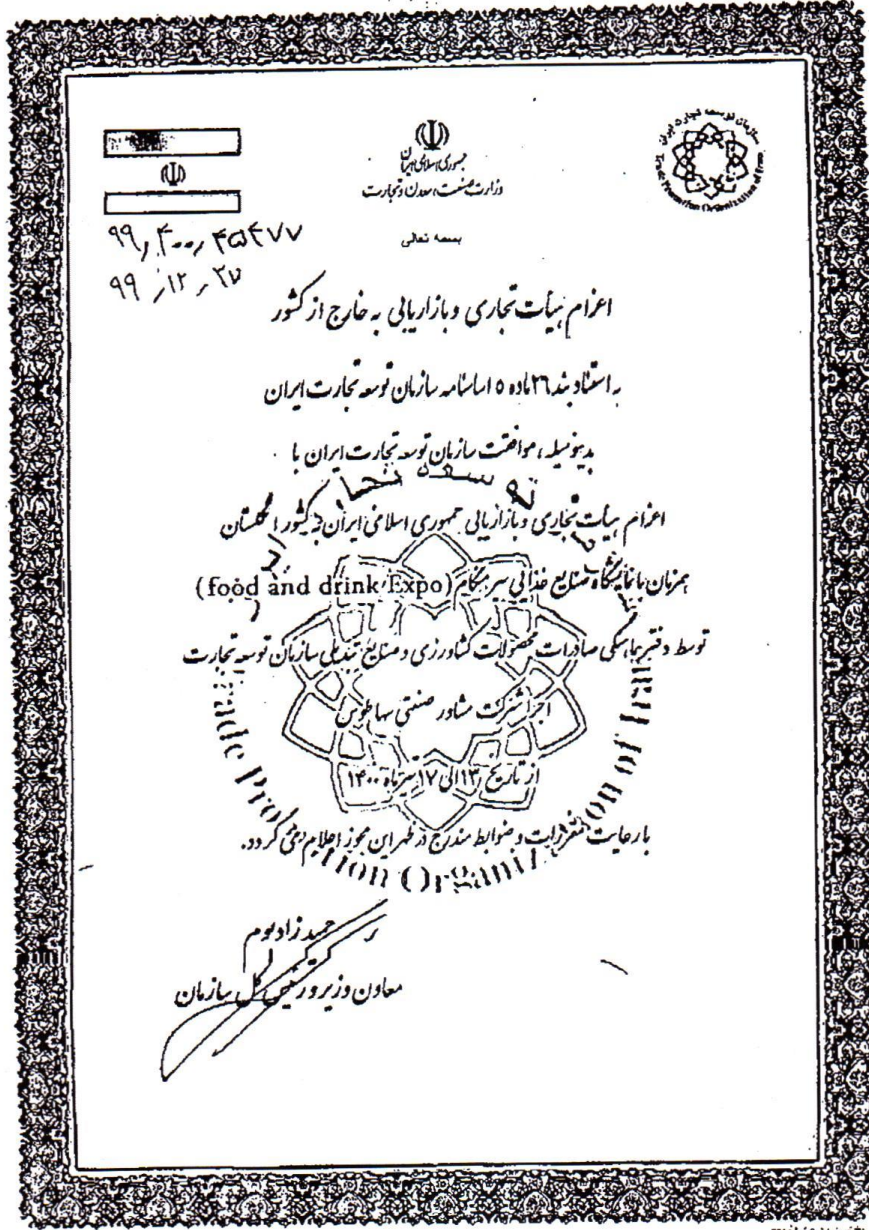 جمهوری اسلامی ایران
وزارت صنعت، معدن و تجارت
سازمان توسعه تجارت ایران
Trade Promotion Organization of Iran
بسمه تعالی
۹۹٫۴۰۰٫۴۵۴۷۷
۹۹٫۱۲٫۲۷
اعزام هیأت تجاری و بازاریابی به خارج از کشور
به استناد بند ۲۶ ماده ۵ اساسنامه سازمان توسعه تجارت ایران
بدینوسیله، موافقت سازمان توسعه تجارت ایران با
اعزام هیأت تجاری و بازاریابی جمهوری اسلامی ایران به کشور انگلستان
همزمان با نمایشگاه صنایع غذایی بیرمنگام (food and drink Expo)
توسط دفتر هماهنگی صادرات محصولات کشاورزی و صنایع تبدیلی سازمان توسعه تجارت
اجرا شرکت مشاور صنعتی سها طوس
از تاریخ ۱۳ الی ۱۷ تیر ماه ۱۴۰۰
با رعایت مقررات و ضوابط مندرج در ظهر این مجوز اعلام می گردد.
Trade Promotion Organization of Iran
حمید زادبوم
معاون وزیر و رئیس کل سازمان